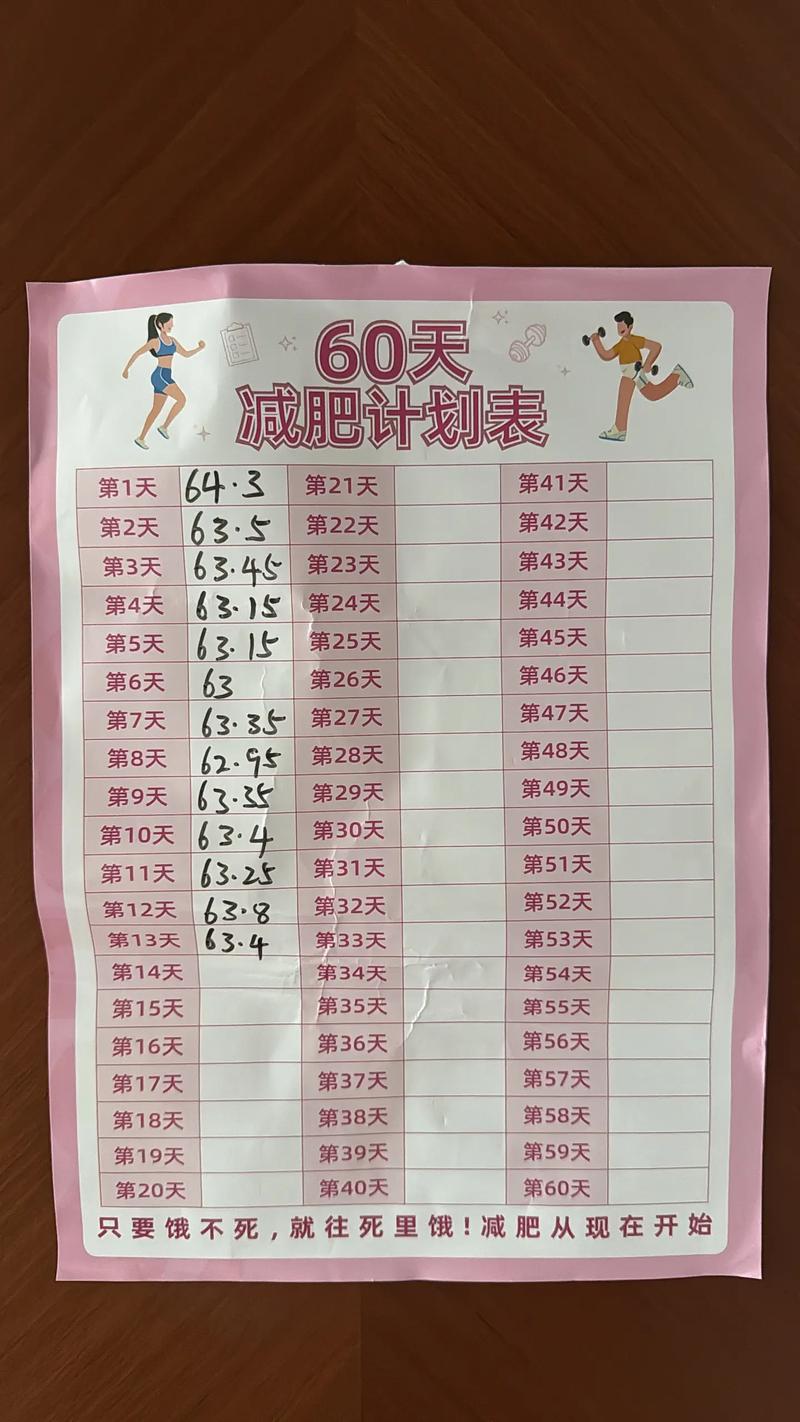 60天
减肥计划表
第1天 64.3 第21天 第41天
第2天 63.5 第22天 第42天
第3天 63.45 第23天 第43天
第4天 63.15 第24天 第44天
第5天 63.15 第25天 第45天
第6天 63 第26天 第46天
第7天 63.35 第27天 第47天
第8天 62.95 第28天 第48天
第9天 63.35 第29天 第49天
第10天 63.4 第30天 第50天
第11天 63.25 第31天 第51天
第12天 63.8 第32天 第52天
第13天 63.4 第33天 第53天
第14天 第34天 第54天
第15天 第35天 第55天
第16天 第36天 第56天
第17天 第37天 第57天
第18天 第38天 第58天
第19天 第39天 第59天
第20天 第40天 第60天
只要饿不死,就往死里饿!减肥从现在开始